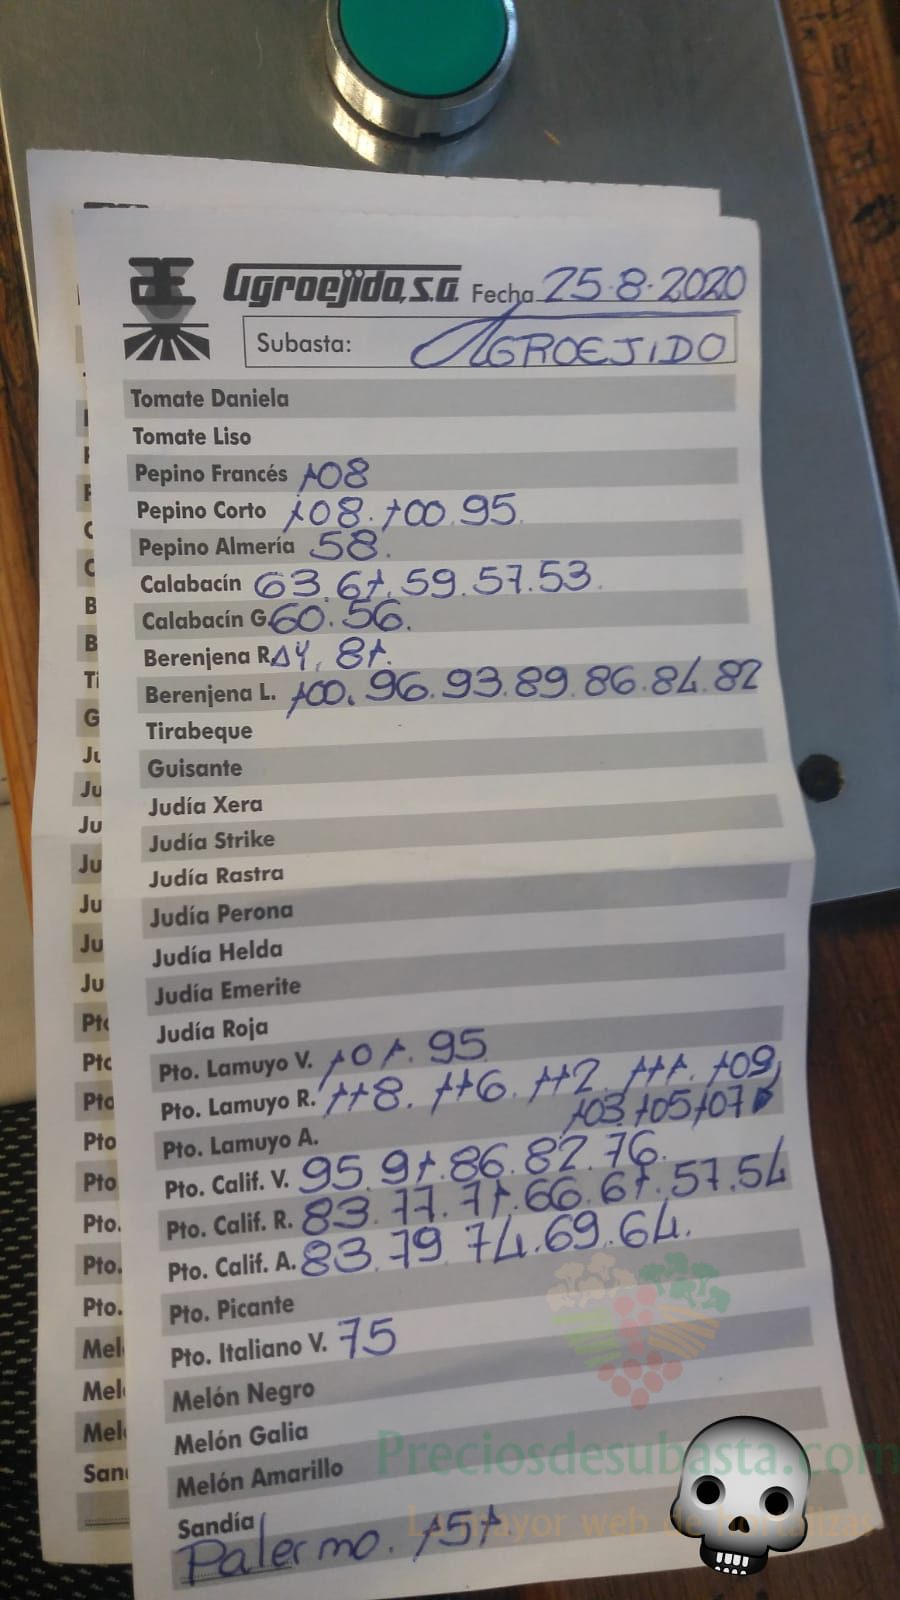 Agroejido, s.a. Fecha 25·8·2020
Subasta: AGROEJIDO
Tomate Daniela
Tomate Liso
Pepino Francés 108
Pepino Corto 108. 100. 95.
Pepino Almería 58.
Calabacín 63. 61. 59. 57. 53.
Calabacín G. 60. 56.
Berenjena R. 81.
Berenjena L. 100. 96. 93. 89. 86. 84. 82
Tirabeque
Guisante
Judía Xera
Judía Strike
Judía Rastra
Judía Perona
Judía Helda
Judía Emerite
Judía Roja
Pto. Lamuyo V. 101. 95
Pto. Lamuyo R. 118. 116. 112. 111. 109,
103. 105 107
Pto. Lamuyo A.
Pto. Calif. V. 95. 91. 86. 82. 76.
Pto. Calif. R. 83. 77. 71. 66. 61. 57. 54
Pto. Calif. A. 83. 79. 74. 69. 64.
Pto. Picante
Pto. Italiano V. 75
Melón Negro
Melón Galia
Melón Amarillo
Sandía
Palermo. 151
Preciosdesubasta.com
La mayor web de hortalizas